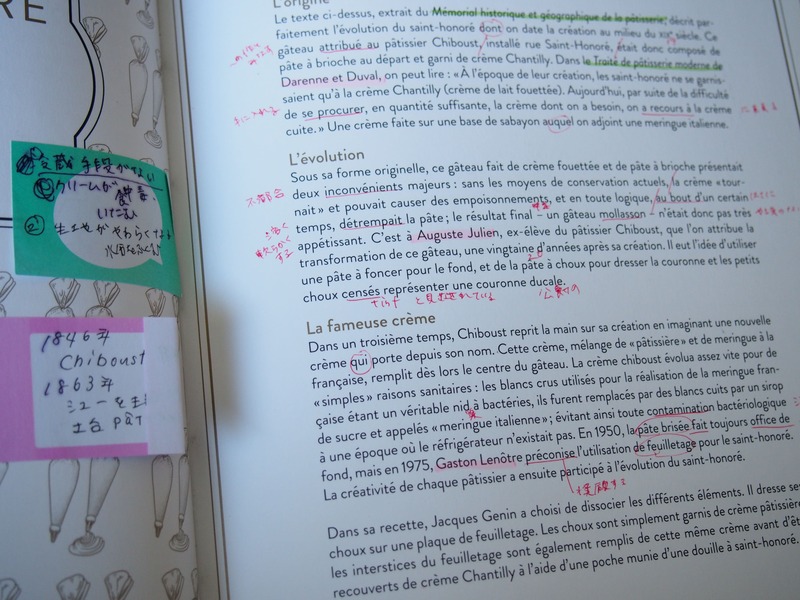 RE
L'origine
Le texte ci-dessus, extrait du Mémorial historique et géographique de la pâtisserie, décrit par-
faitement l'évolution du saint-honoré dont on date la création au milieu du XIXe siècle. Ce
gâteau attribué au pâtissier Chiboust, installé rue Saint-Honoré, était donc composé de
pâte à brioche au départ et garni de crème Chantilly. Dans le Traité de pâtisserie moderne de
Darenne et Duval, on peut lire : « À l'époque de leur création, les saint-honoré ne se garnis-
saient qu'à la crème Chantilly (crème de lait fouettée). Aujourd'hui, par suite de la difficulté
de se procurer, en quantité suffisante, la crème dont on a besoin, on a recours à la crème
cuite. » Une crème faite sur une base de sabayon auquel on adjoint une meringue italienne.
L'évolution
Sous sa forme originelle, ce gâteau fait de crème fouettée et de pâte à brioche présentait
deux inconvénients majeurs : sans les moyens de conservation actuels, la crème « tour-
nait » et pouvait causer des empoisonnements, et en toute logique, au bout d'un certain
temps, détrempait la pâte ; le résultat final – un gâteau mollasson – n'était donc pas très
appétissant. C'est à Auguste Julien, ex-élève du pâtissier Chiboust, que l'on attribua la
transformation de ce gâteau, une vingtaine d'années après sa création. Il eut l'idée d'utiliser
une pâte à foncer pour le fond, et de la pâte à choux pour dresser la couronne et les petits
choux censés représenter une couronne ducale.
La fameuse crème
Dans un troisième temps, Chiboust reprit la main sur sa création en imaginant une nouvelle
crème qui porte depuis son nom. Cette crème, mélange de « pâtissière » et de meringue à la
française, remplit dès lors le centre du gâteau. La crème chiboust évolua assez vite pour de
« simples » raisons sanitaires : les blancs crus utilisés pour la réalisation de la meringue fran-
çaise étant un véritable nid à bactéries, ils furent remplacés par des blancs cuits par un sirop
de sucre et appelés « meringue italienne » ; évitant ainsi toute contamination bactériologique
à une époque où le réfrigérateur n'existait pas. En 1950, la pâte brisée fait toujours office de
fond, mais en 1975, Gaston Lenôtre préconise l'utilisation de feuilletage pour le saint-honoré.
La créativité de chaque pâtissier a ensuite participé à l'évolution du saint-honoré.
Dans sa recette, Jacques Genin a choisi de dissocier les différents éléments. Il dresse se
choux sur une plaque de feuilletage. Les choux sont simplement garnis de crème pâtissière
les interstices du feuilletage sont également remplis de cette même crème avant d'êt
recouverts de crème Chantilly à l'aide d'une poche munie d'une douille à saint-honoré.
手段がない
クリームが
②生地がやわらくなる
1846年
Chiboust
1863年
シューを
土台 PàT